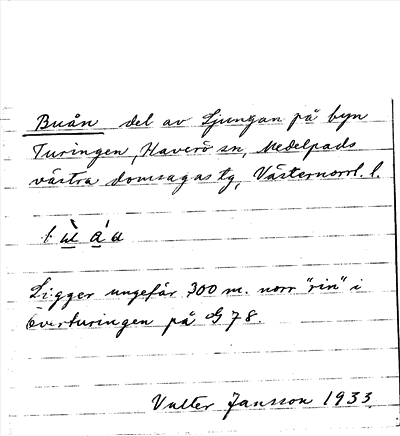 Buån del av Ljungan på byn
Turingen, Haverö sn, Medelpads
västra domsagas tg, Västernorrl. l.
Ligger ungefär 300 m. norr "rin" i
överturingen på G 78.
Valter Jansson 1933